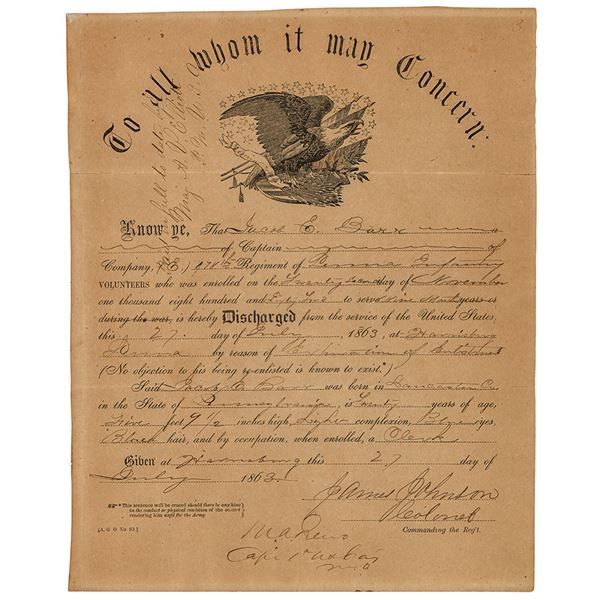 To all whom it may Concern:
full to date by
Maj A.
Know ye, That Jacob E. Barr
of Captain of
Company, (E.) 178th Regiment of Penna Infantry
VOLUNTEERS who was enrolled on the day of November
one thousand eight hundred and Sixty Two to serve Nine Months years or
during the war, is hereby Discharged from the service of the United States,
this 27 day of July, 1863, at Harrisburg
Penna by reason of Expiration of Enlistment
(No objection to his being re-enlisted is known to exist.*)
Said Jacob E. Barr was born in Lancaster Co.
in the State of Pennsylvania, is Twenty years of age,
Five feet 9 1/2 inches high, Light complexion, Blue eyes,
Black hair, and by occupation, when enrolled, a Clerk
Given at Harrisburg this 27 day of
July 1863.
James Johnson
Colonel
Commanding the Reg't.
* This sentence will be erased should there be anything
in the conduct or physical condition of the soldier
rendering him unfit for the Army
[A. G. O. No 93.]
M A Reno
Capt 1" US Cav